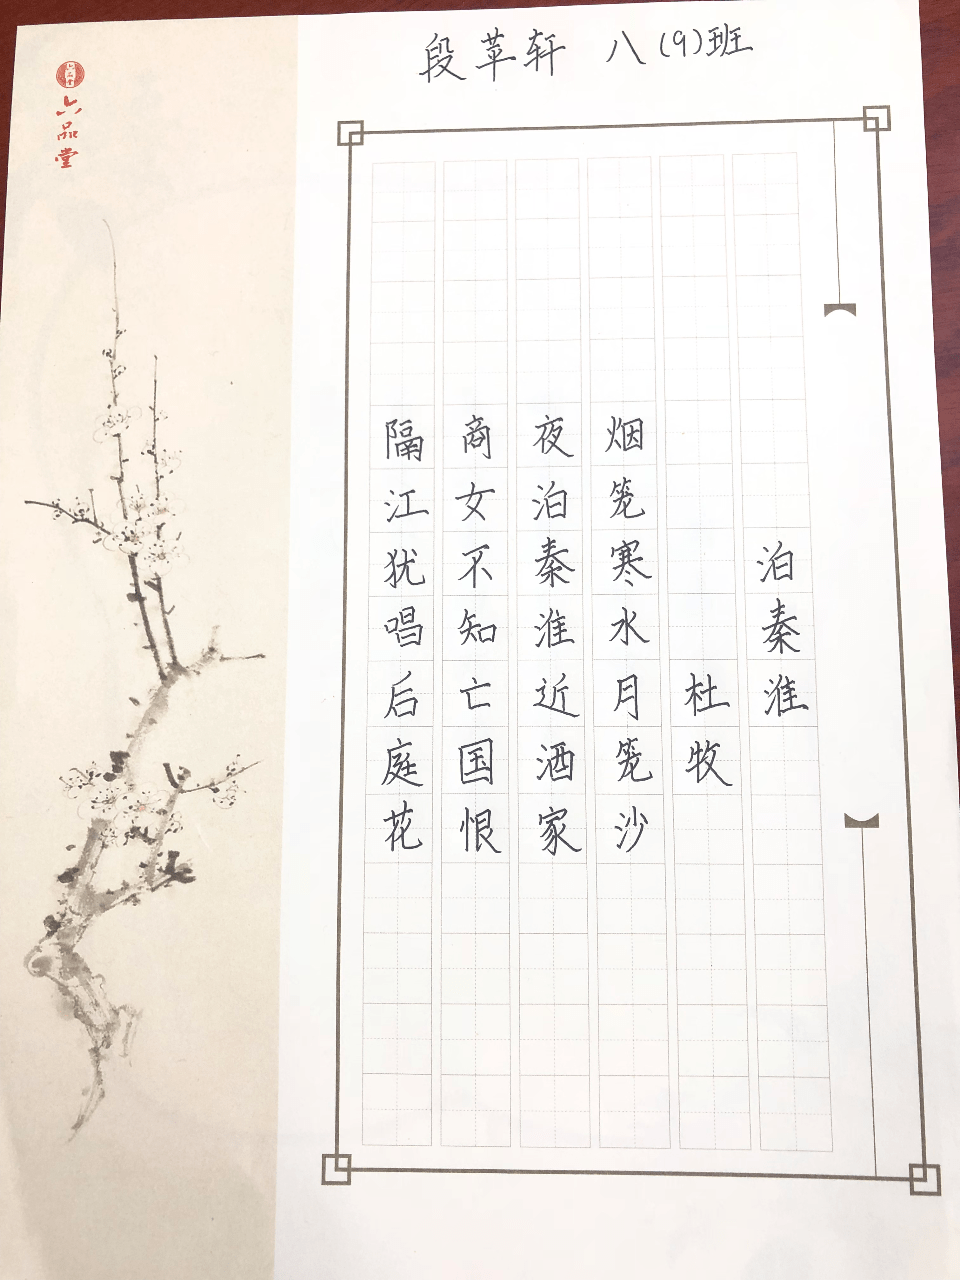 段苹轩 八(9)班
六品堂
泊秦淮
杜牧
烟笼寒水月笼沙
夜泊秦淮近酒家
商女不知亡国恨
隔江犹唱后庭花